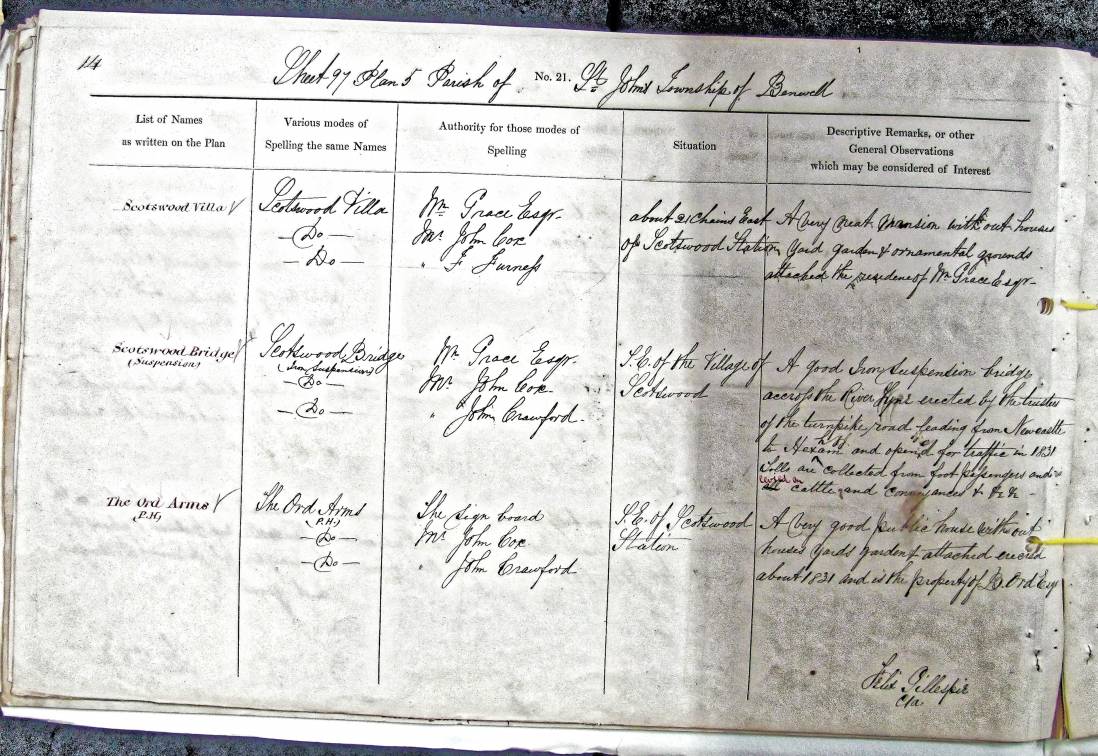 14
1
Sheet 97 Plan 5 Parish of No. 21. St. John's Township of Benwell
List of Names
as written on the Plan
Various modes of
Spelling the same Names
Authority for those modes of
Spelling
Situation
Descriptive Remarks, or other
General Observations
which may be considered of Interest
Scotswood Villa
Scotswood Villa
Do
Do
Wm. Grace Esqr.
Mr. John Cox
" F Furness
about 21 Chains East
of Scotswood Station
A very neat Mansion with out houses
Yard garden & ornamental grounds
attached the residence of Wm. Grace Esqr.
Scotswood Bridge
(Suspension)
Scotswood Bridge
(Iron Suspension)
Do
Do
Wm. Grace Esqr.
Mr. John Cox
" John Crawford
S.E. of the Village of
Scotswood
A good Iron Suspension bridge
accross the River Tyne erected by the trustees
of the turnpike road leading from Newcastle
to Hexham and opened for traffic in 1831
Tolls are collected from foot passengers and
levied on
all cattle and conveyances &c &c
The Ord Arms
(P.H.)
The Ord Arms
(P.H.)
Do
Do
The Sign board
Mr. John Cox
" John Crawford
S.E. of Scotswood
Station
A very good public house with out
houses yards garden & attached erected
about 1831 and is the property of B. Ord Esq
Felix Gillespie
C/a